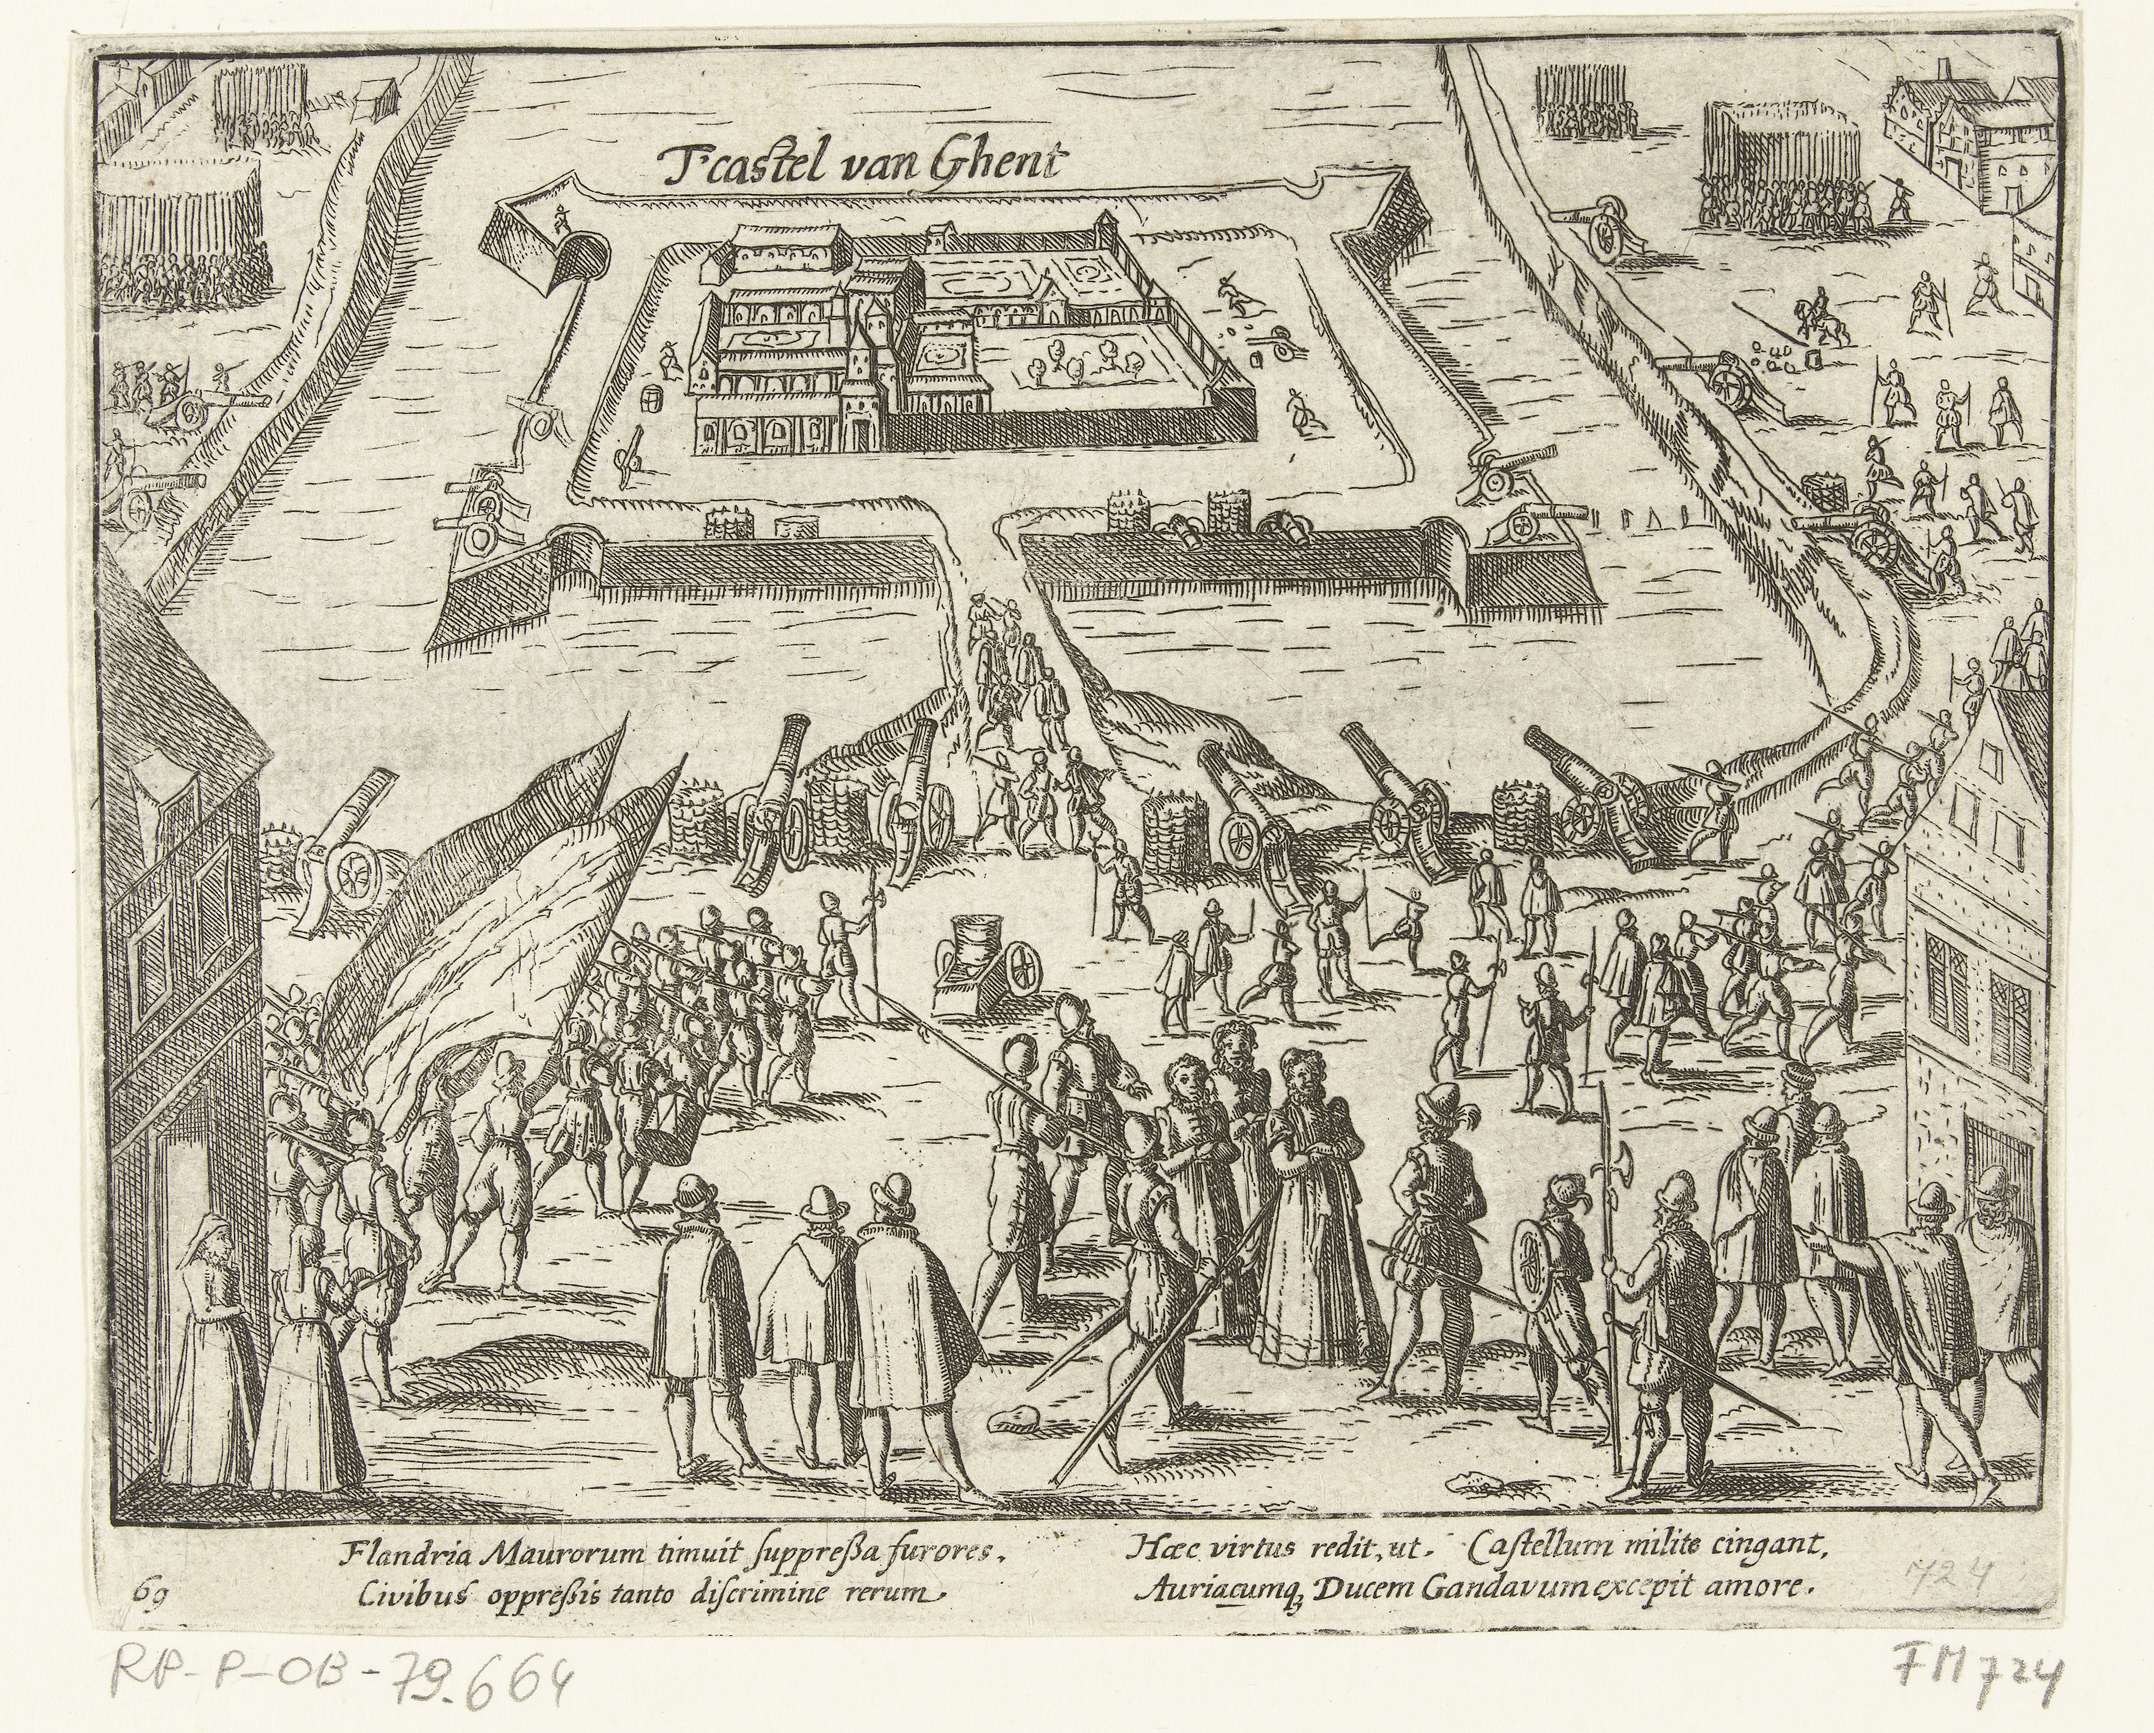 T'castel van Ghent
Flandria Maurorum timuit ſuppreßa furores.
Civibus oppreßis tanto diſcrimine rerum.
Hæc virtus redit, ut. Caſtellum milite cingant,
Auriacumq; Ducem Gandavum excepit amore.
69
724
RP-P-OB-79.664
FM 724